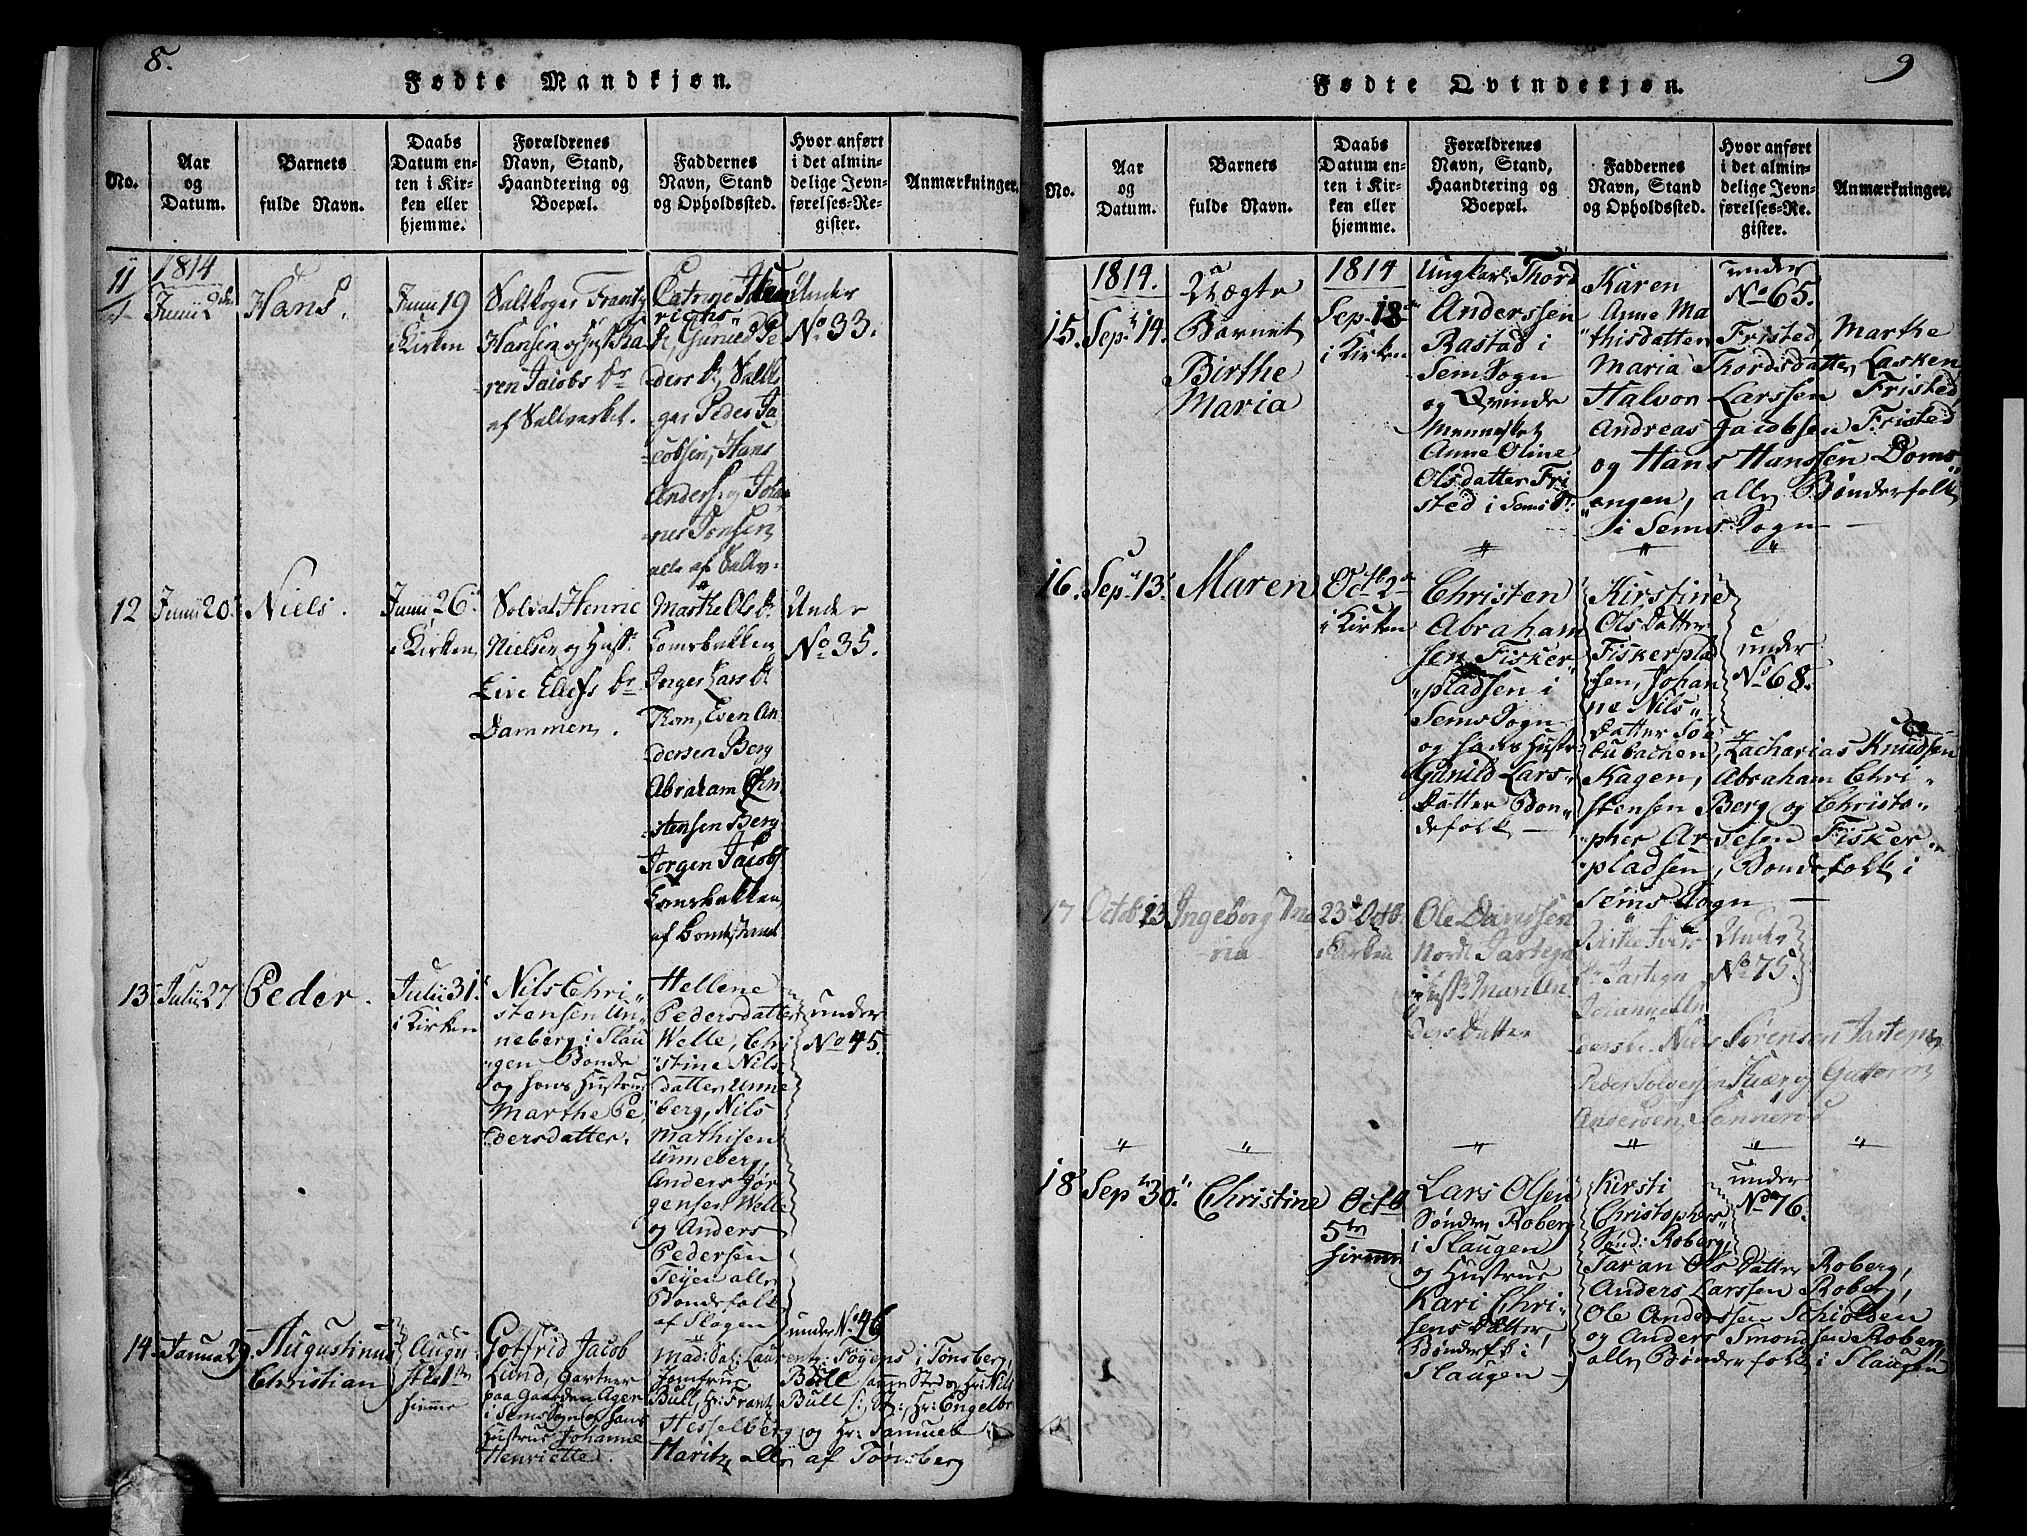 8.
Fødte Mandkjøn.
No.
Aar
og
Datum.
Barnets
fulde Navn.
Daabs
Datum en-
ten i Kir-
ken eller
hjemme.
Forældrenes
Navn, Stand,
Haandtering og
Boepæl.
Faddernes
Navn, Stand
og Opholdssted.
Hvor anført
i det almin-
delige Jevn-
førelses-Re-
gister.
Anmærkninger.
11
1814
Junii 2den
Hans.
Junii 19
i Kirken
Saltkoger Frantz
Hansen og Hust Ka
ren Jacobs Dr
af Saltverket.
Catrine
Gunild Pe
ders Dr, Saltko
ger Peder Ja
cobsen, Hans
Anders: og Joha
nes Jonsen
alle af Saltv.
Under
No 33.
12
Junii 20
Niels.
Junii 26
i Kirken
Soldat Henric
Nielsen og Hust
Live Ellefs Dr
Dammen.
Marthe Ols Dr
Lomsbakken
Inger Lars Dr
Thom, Even An
dersen Berg
Abraham Chri
stensen Berg
Jørgen Jacobs
Lomsbakken
af Bondestand
Under
No 35.
13
Julii 27
Peder.
Julii 31
i Kirken
Nils Chri
stensen Un
neberg i Slau
gen Bonde
og hans Hustrue
Marthe Pe
dersdatter.
Hellene
Pedersdatter
Welle, Chri
stine Nils
datter Unne
berg, Nils
Mathisen
Unneberg,
Anders Jør
gensen Welle
og Anders
Pedersen
Teyen alle
Bondefolk
af Slagen
under
No 45.
14
Janua 29
Augustinus
Christian
Augu
st 1ste
hiemme
Gotfrid Jacob
Lund, Gartner
paa Gaarden Ager
i Sems Sogn og hans
Hustrue Johanne
Henriette.
under No 46
Mad: Sal: Laurentz: Føyens i Tønsberg,
Jomfrue Bull samme Sted og Hr: Nils
Bull, Hr: Frantz Bull s: St:, Hr: Engelbr
Hesselberg og Hr: Samuel
Maritz, alle af Tønsberg
9
Fødte Qvindekjøn.
No.
Aar
og
Datum.
Barnets
fulde Navn.
Daabs
Datum en-
ten i Kir-
ken eller
hjemme.
Forældrenes
Navn, Stand,
Haandtering og
Boepæl.
Faddernes
Navn, Stand
og Opholdssted.
Hvor anført
i det almin-
delige Jevn-
førelses-Re-
gister.
Anmærkninger.
15.
1814.
Sept 14.
Uægte
Barnet
Birthe
Maria
1814
Sep. 18de
i Kirken
Ungkarl Thord
Anderssen
Rastad i
Sem Sogn
og Qvinde
Mennesket
Anne Oline
Olsdatter Fri
sted i Sems Sn:
under
No 65.
Karen
Anne Ma
thisdatter Fristed, Marthe
Maria Thordsdatter Lasken
Halvor Larssen Fristed,
Andreas Jacobsen Fristed
og Hans Hanssen Doms
ongen, alle Bønderfolk
i Sems Sogn
16.
Sept 13.
Maren
Octb 2den
i Kirken
Christen
Abraham
sen Fisker
pladsen i
Sems Sogn
og hans Hustr:
Gunild Lars
Datter Bon
defolk
Kirstine
Ols Datter
Fiskerplad
sen, Johan
ne Nils
Datter
bachen, Zacharias Knudsen
Hagen, Abraham Chri
stensen Berg og Christo
pher Arvesen Fisker
pladsen, Bondefolk i
Sems Sogn
under
No 68.
17
Octob 13
Ingeborg Ma
ria
23 Octb.
i Kirken
Ole Davidsen
Nordr Jartegn
og Hustr Mari An
ders Datter
Birthe Ivers
Dr Jartegn
Johanne An
dersdr Niels Sørensen Jartegn
Peder Solversen Kiær og Guttorm
Andersen Sennerød
Under
No 75.
18
Sept 30.
Christine
Octb
5te
hiemme
Lars Olsen
Søndre Roberg
i Slaugen
og Hustrue
Kari Chri
sens Datter,
Bønderfolk i
Slaugen
under
No 76.
Kirsti
Christophers
Sønd: Roberg,
Taran Ols Datter Roberg,
Anders Larssen Roberg,
Ole Anderssen Schiolsen
og Anders Simonssen Roberg
alle Bønderfolk i Slaugen